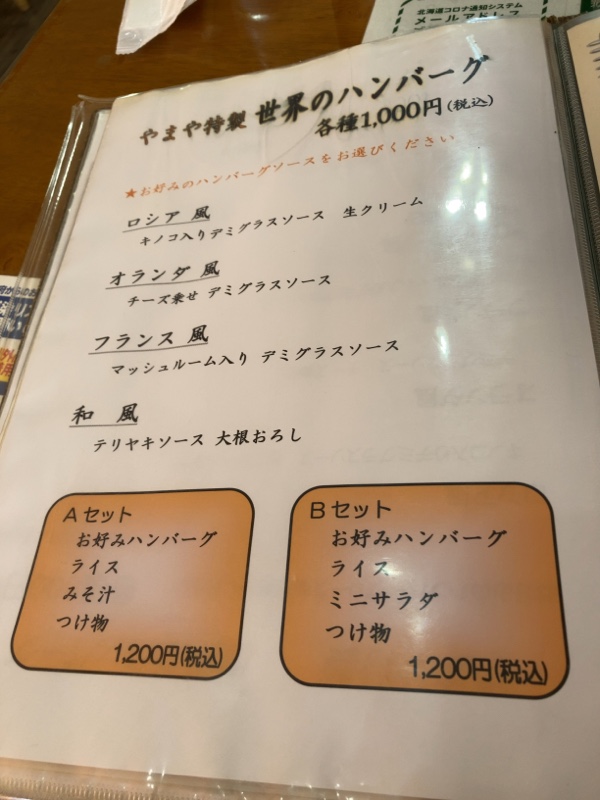 北海道コロナ通知システム
メールアドレス
やまや特製 世界のハンバーグ
各種1,000円(税込)
★お好みのハンバーグソースをお選びください
ロシア 風
キノコ入りデミグラスソース 生クリーム
オランダ 風
チーズ乗せ デミグラスソース
フランス 風
マッシュルーム入り デミグラスソース
和 風
テリヤキソース 大根おろし
Aセット
お好みハンバーグ
ライス
みそ汁
つけ物
1,200円(税込)
Bセット
お好みハンバーグ
ライス
ミニサラダ
つけ物
1,200円(税込)